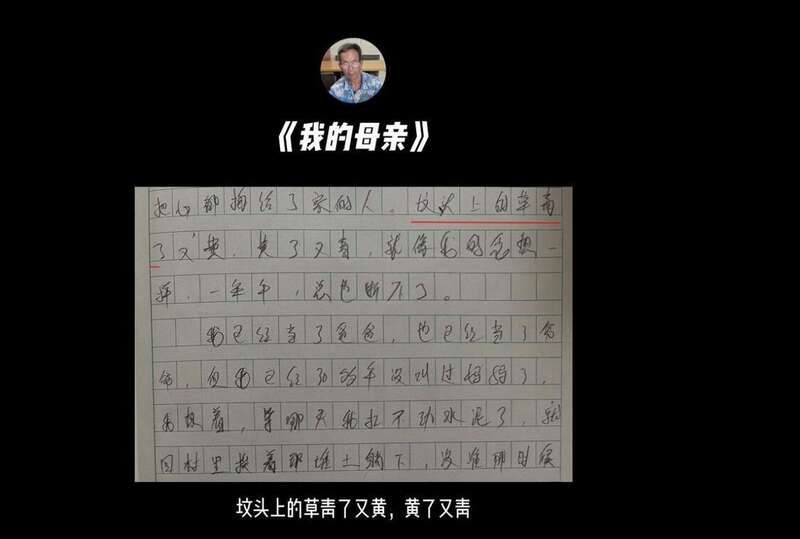 《我的母亲》
把心都掏给了家的人。坟头上的草青
了又黄，黄了又青，就像我的想一
样，一年年，总也断不了。
我已经当了爸爸，也已经当了爷
爷，但我已经30年没叫过妈妈了，
我想着，等哪天我扛不动水泥了，就
回村里挨着那堆土躺下，没准那时候
坟头上的草青了又黄，黄了又青